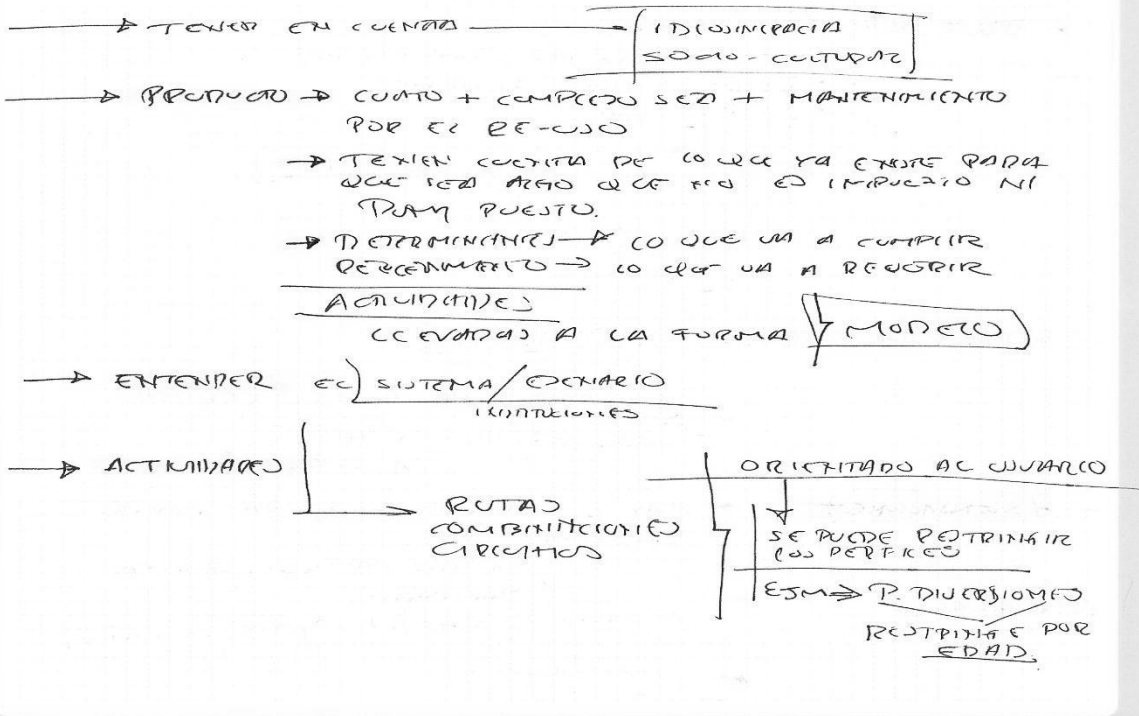 → TENER EN CUENTA — IDIOSINCRACIA
SOCIO-CULTURAL
→ PRODUCTO → CUATO + COMPLEJO SEA + MANTENIMIENTO
POR EL RE-USO
→ TENIEN CUENTA DE LO QUE YA EXISTE PARA
QUE SEA ALGO QUE NO ES IMPUESTO NI
PUESTO.
→ DETERMINANTES → LO QUE VA A CUMPLIR
REQUERIMIENTO → LO QUE VA A REQUERIR
ACTIVIDADES
LLEVADAS A LA FORMA } MODELO
→ ENTENDER EL SISTEMA/ESCENARIO
→ ACTIVIDADES
RUTAS
COMBINACIONES
CIRCUITOS
ORIENTADO AL USUARIO
SE PUEDE RESTRINGIR
LOS PERFILES
EJM → P. DIVERSIONES
RESTRINGE POR
EDAD.